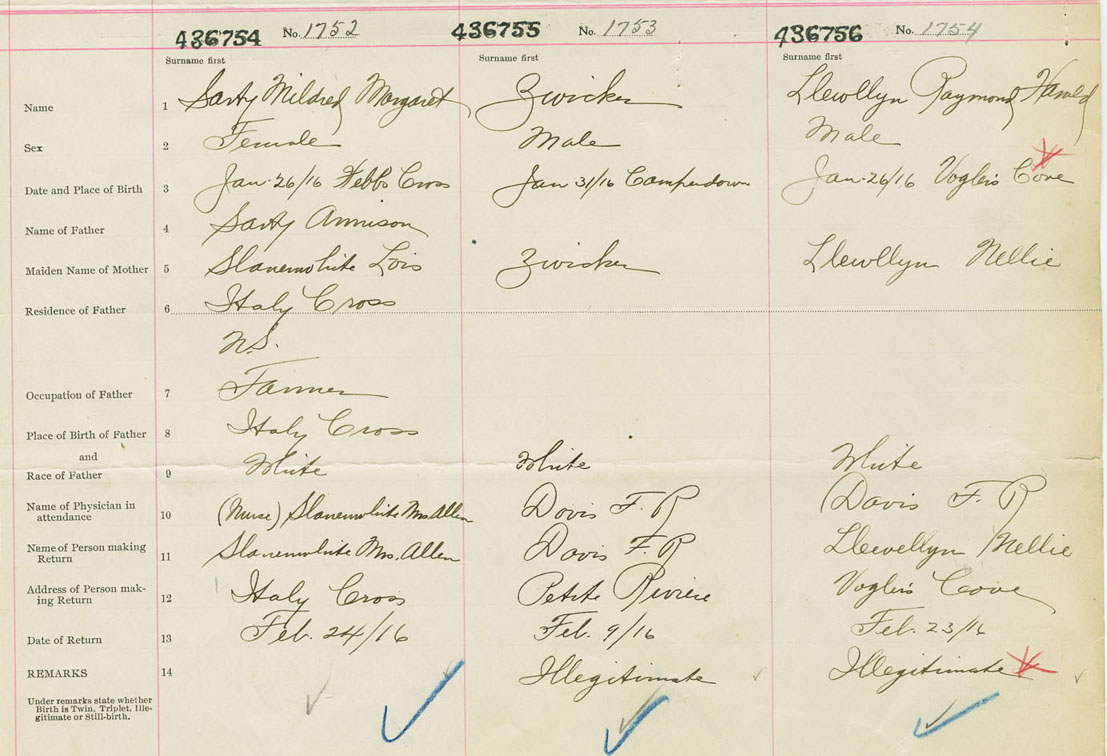 436754 No. 1752 436755 No. 1753 436756 No. 1754
Surname first Surname first Surname first
Name 1 Sarty Mildred Margaret Zwicker Llewllyn Raymond Harold
Sex 2 Female Male Male
Date and Place of Birth 3 Jan. 26/16 Cross Jan 31/16 Camperdown Jan. 26/16 Voglers Cove
Name of Father 4 Sarty Annison
Maiden Name of Mother 5 Slauenwhite Lois Zwicker Llewllyn Nellie
Residence of Father 6 Italy Cross
N.S.
Occupation of Father 7 Farmer
Place of Birth of Father 8 Italy Cross
and
Race of Father 9 White White White
Name of Physician in
attendance 10 (Nurse) Slauenwhite Mrs Allen Davis F. R Davis F. R
Name of Person making
Return 11 Slauenwhite Mrs. Allen Davis F. R Llewellyn Nellie
Address of Person mak-
ing Return 12 Italy Cross Petite Riviere Voglers Cove
Date of Return 13 Feb. 24/16 Feb. 9/16 Feb. 23/16
REMARKS 14 Illegitimate Illegitimate
Under remarks state whether
Birth is Twin, Triplet, Ille-
gitimate or Still-birth.